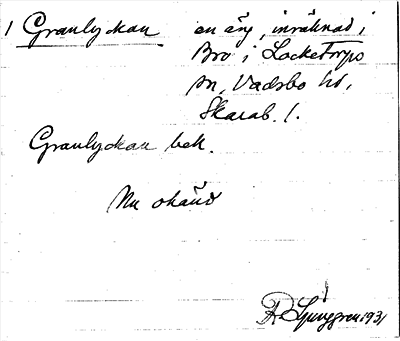 1 Granlyckan en äng, inräknad i
Bro i Locketorps
sn, Vadsbo hd,
Skarab. l.
Granlyckan bek.
Nu okänd
R. Ljunggren 1931